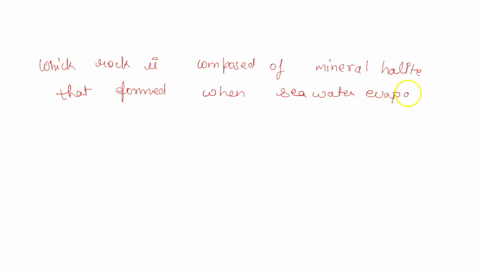 which rock is composed of mineral halite
that formed when sea water evapo